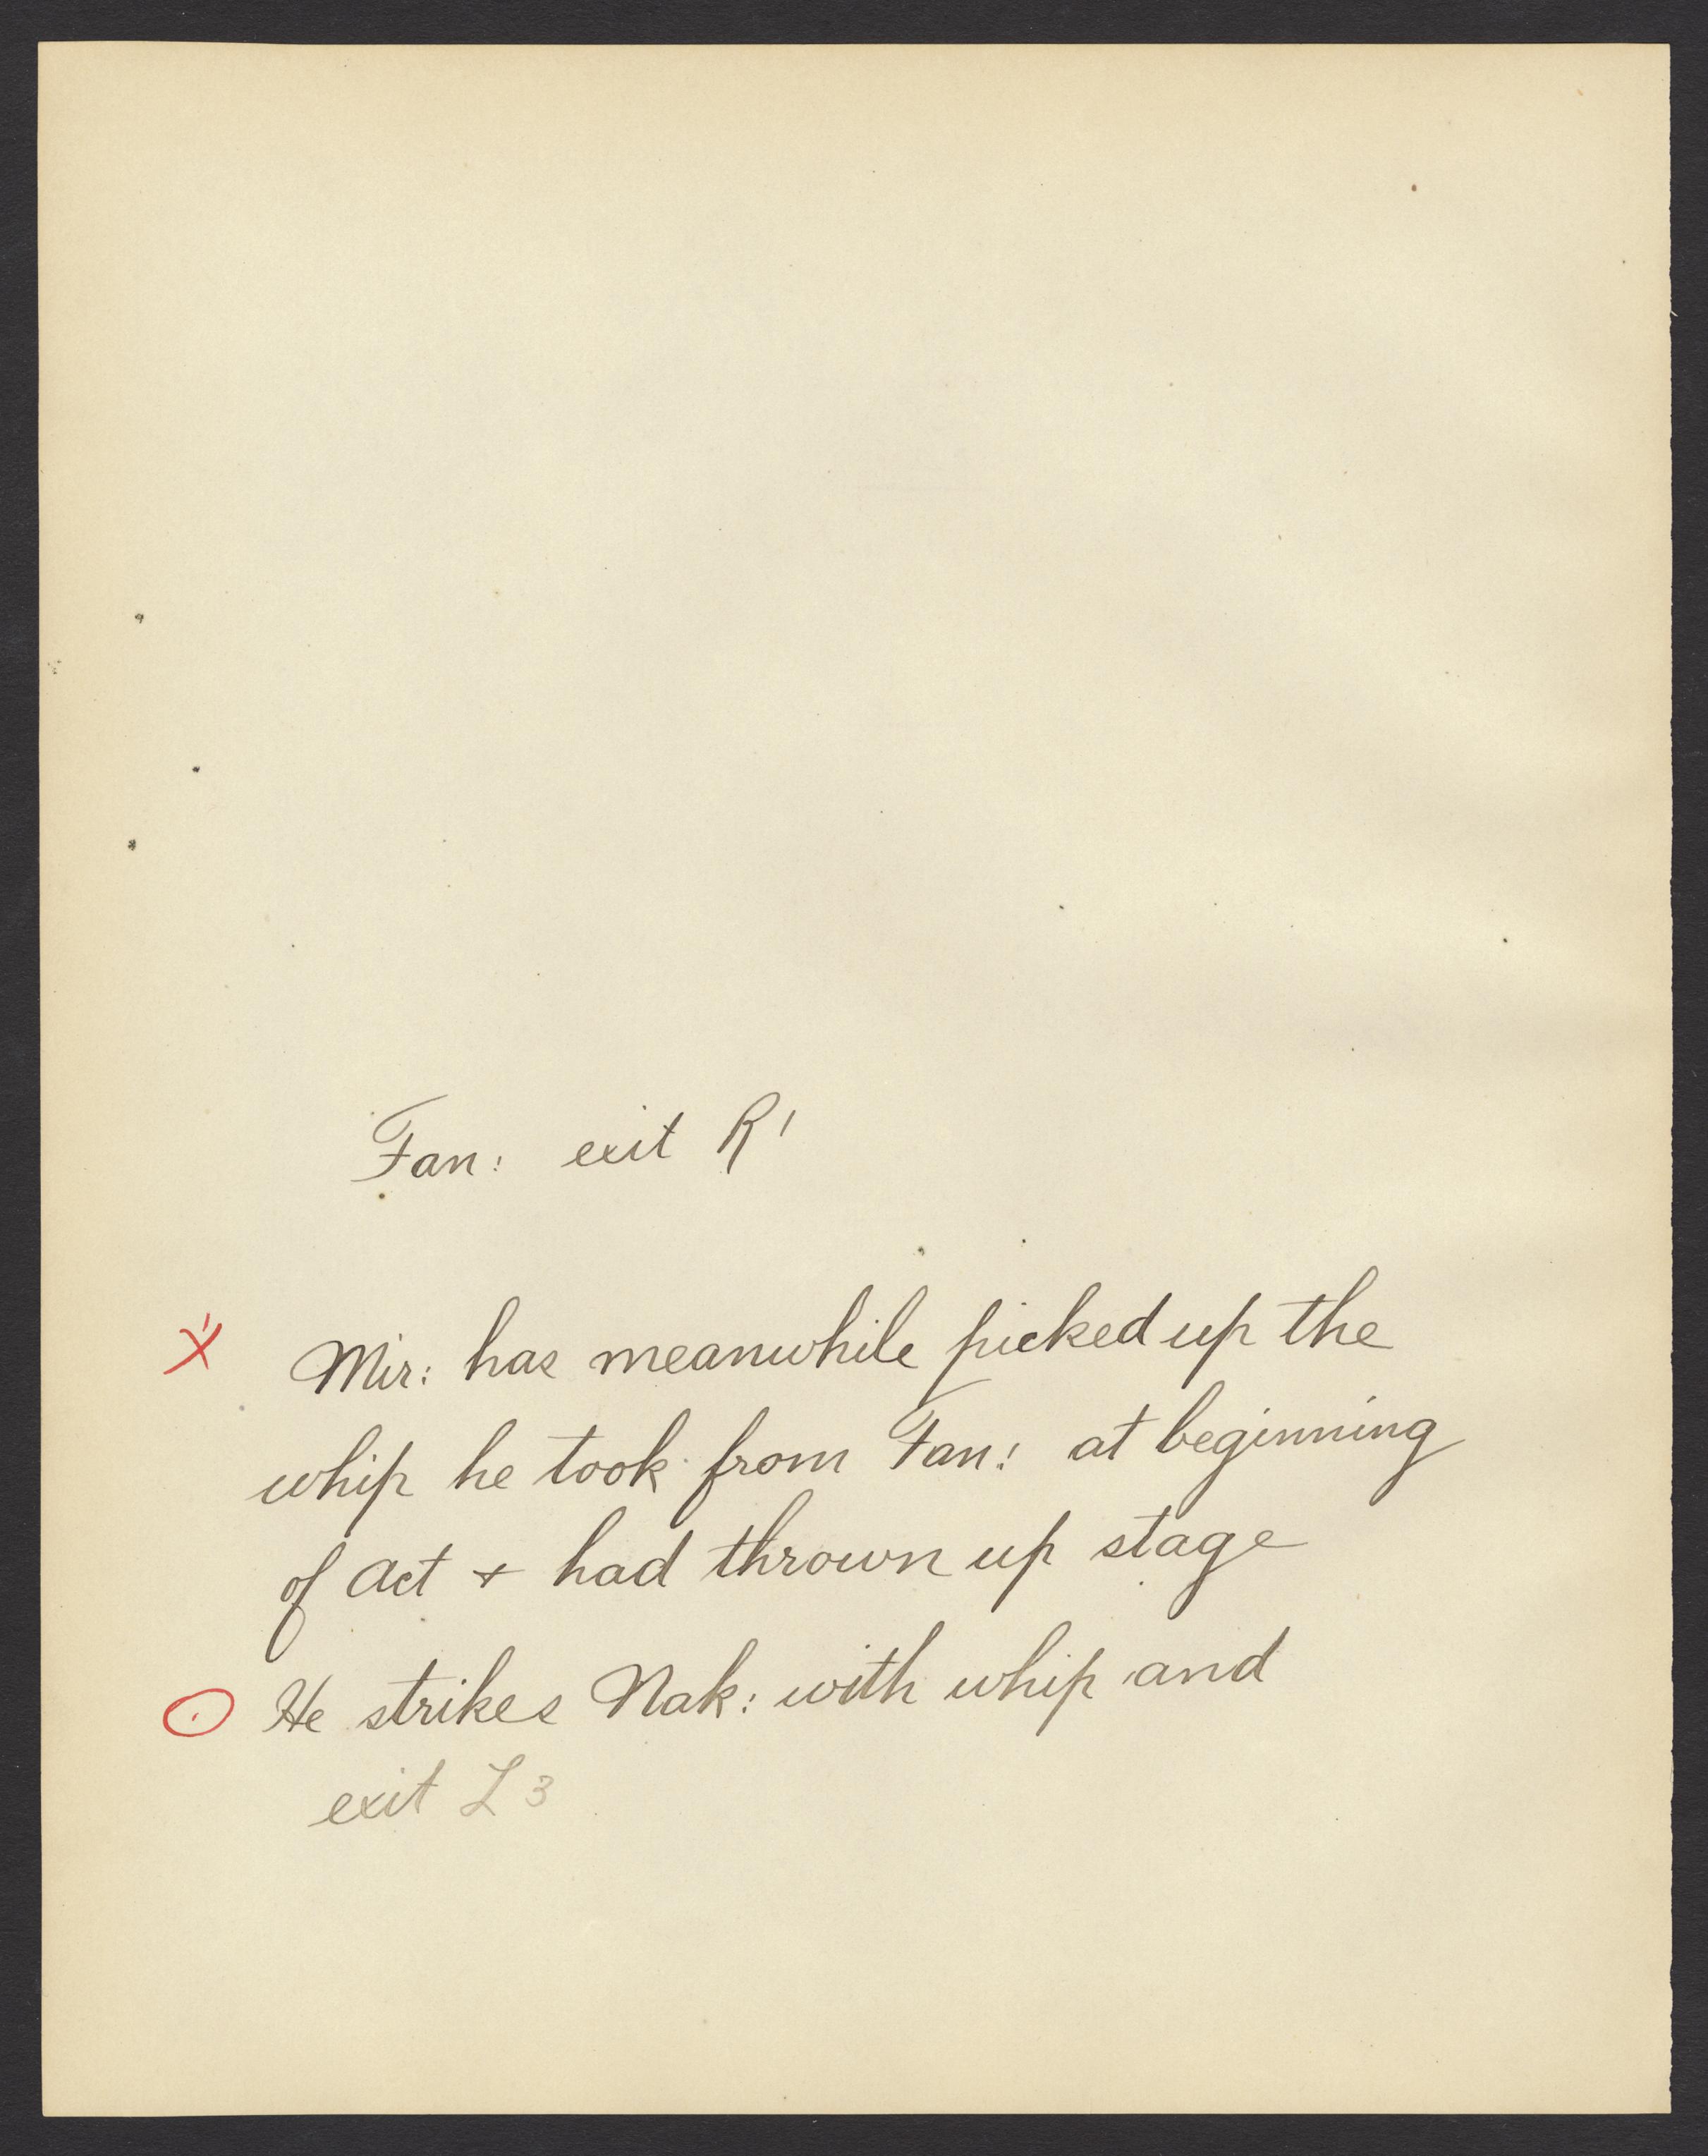 Fan: exit R1
X Mir: has meanwhile picked up the
whip he took from Fan: at beginning
of Act + had thrown up stage
O He strikes Nak: with whip and
exit L3